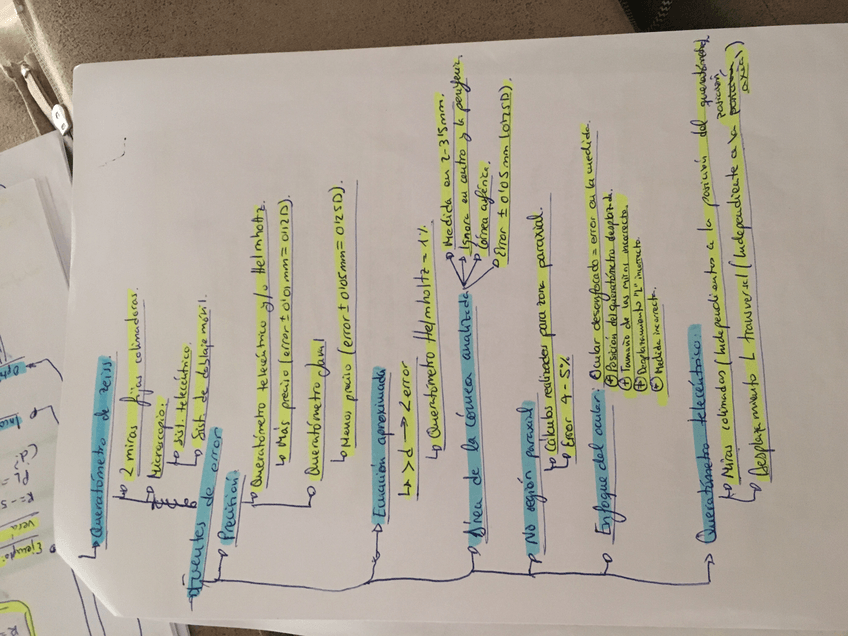 ↳ Queratómetro de Zeiss.
↳ 2 miras fijas colimadoras.
↳ Microscopio:
↳ Sist. telecéntrico.
↳ Sist. de doblaje móvil.
Fuentes de error
↳ Precisión
↳ Queratómetro telecéntrico y/o Helmholtz.
↳ Más preciso (error ± 0'01mm = 0'12D).
↳ Queratómetro Javal
↳ Menos preciso (error ± 0'05mm = 0'25D).
→ Ecuación aproximada
↳ > d → < error
↳ Queratómetro Helmholtz = 1%
→ Área de la córnea analizada
→ Medida en 2-3'5mm.
→ Ignora en centro y la periferia.
→ Córnea asférica.
→ Error ± 0'05mm (0'25D).
→ No región paraxial
↳ Cálculos realizados para zona paraxial.
↳ Error 4-5%
→ Enfoque del ocular:
① Ocular desenfocado = error en la medida.
② Posición del queratómetro desplazada.
Tamaño de las miras incorrecto.
Desplazamiento "L" incorrecto.
Medida incorrecta.
→ Queratómetro telecéntrico:
↳ Miras colimadas (Independientes a la posición del queratómetro)
↳ Desplazamiento L transversal (Independiente a la posición axial)
Ejemplo: